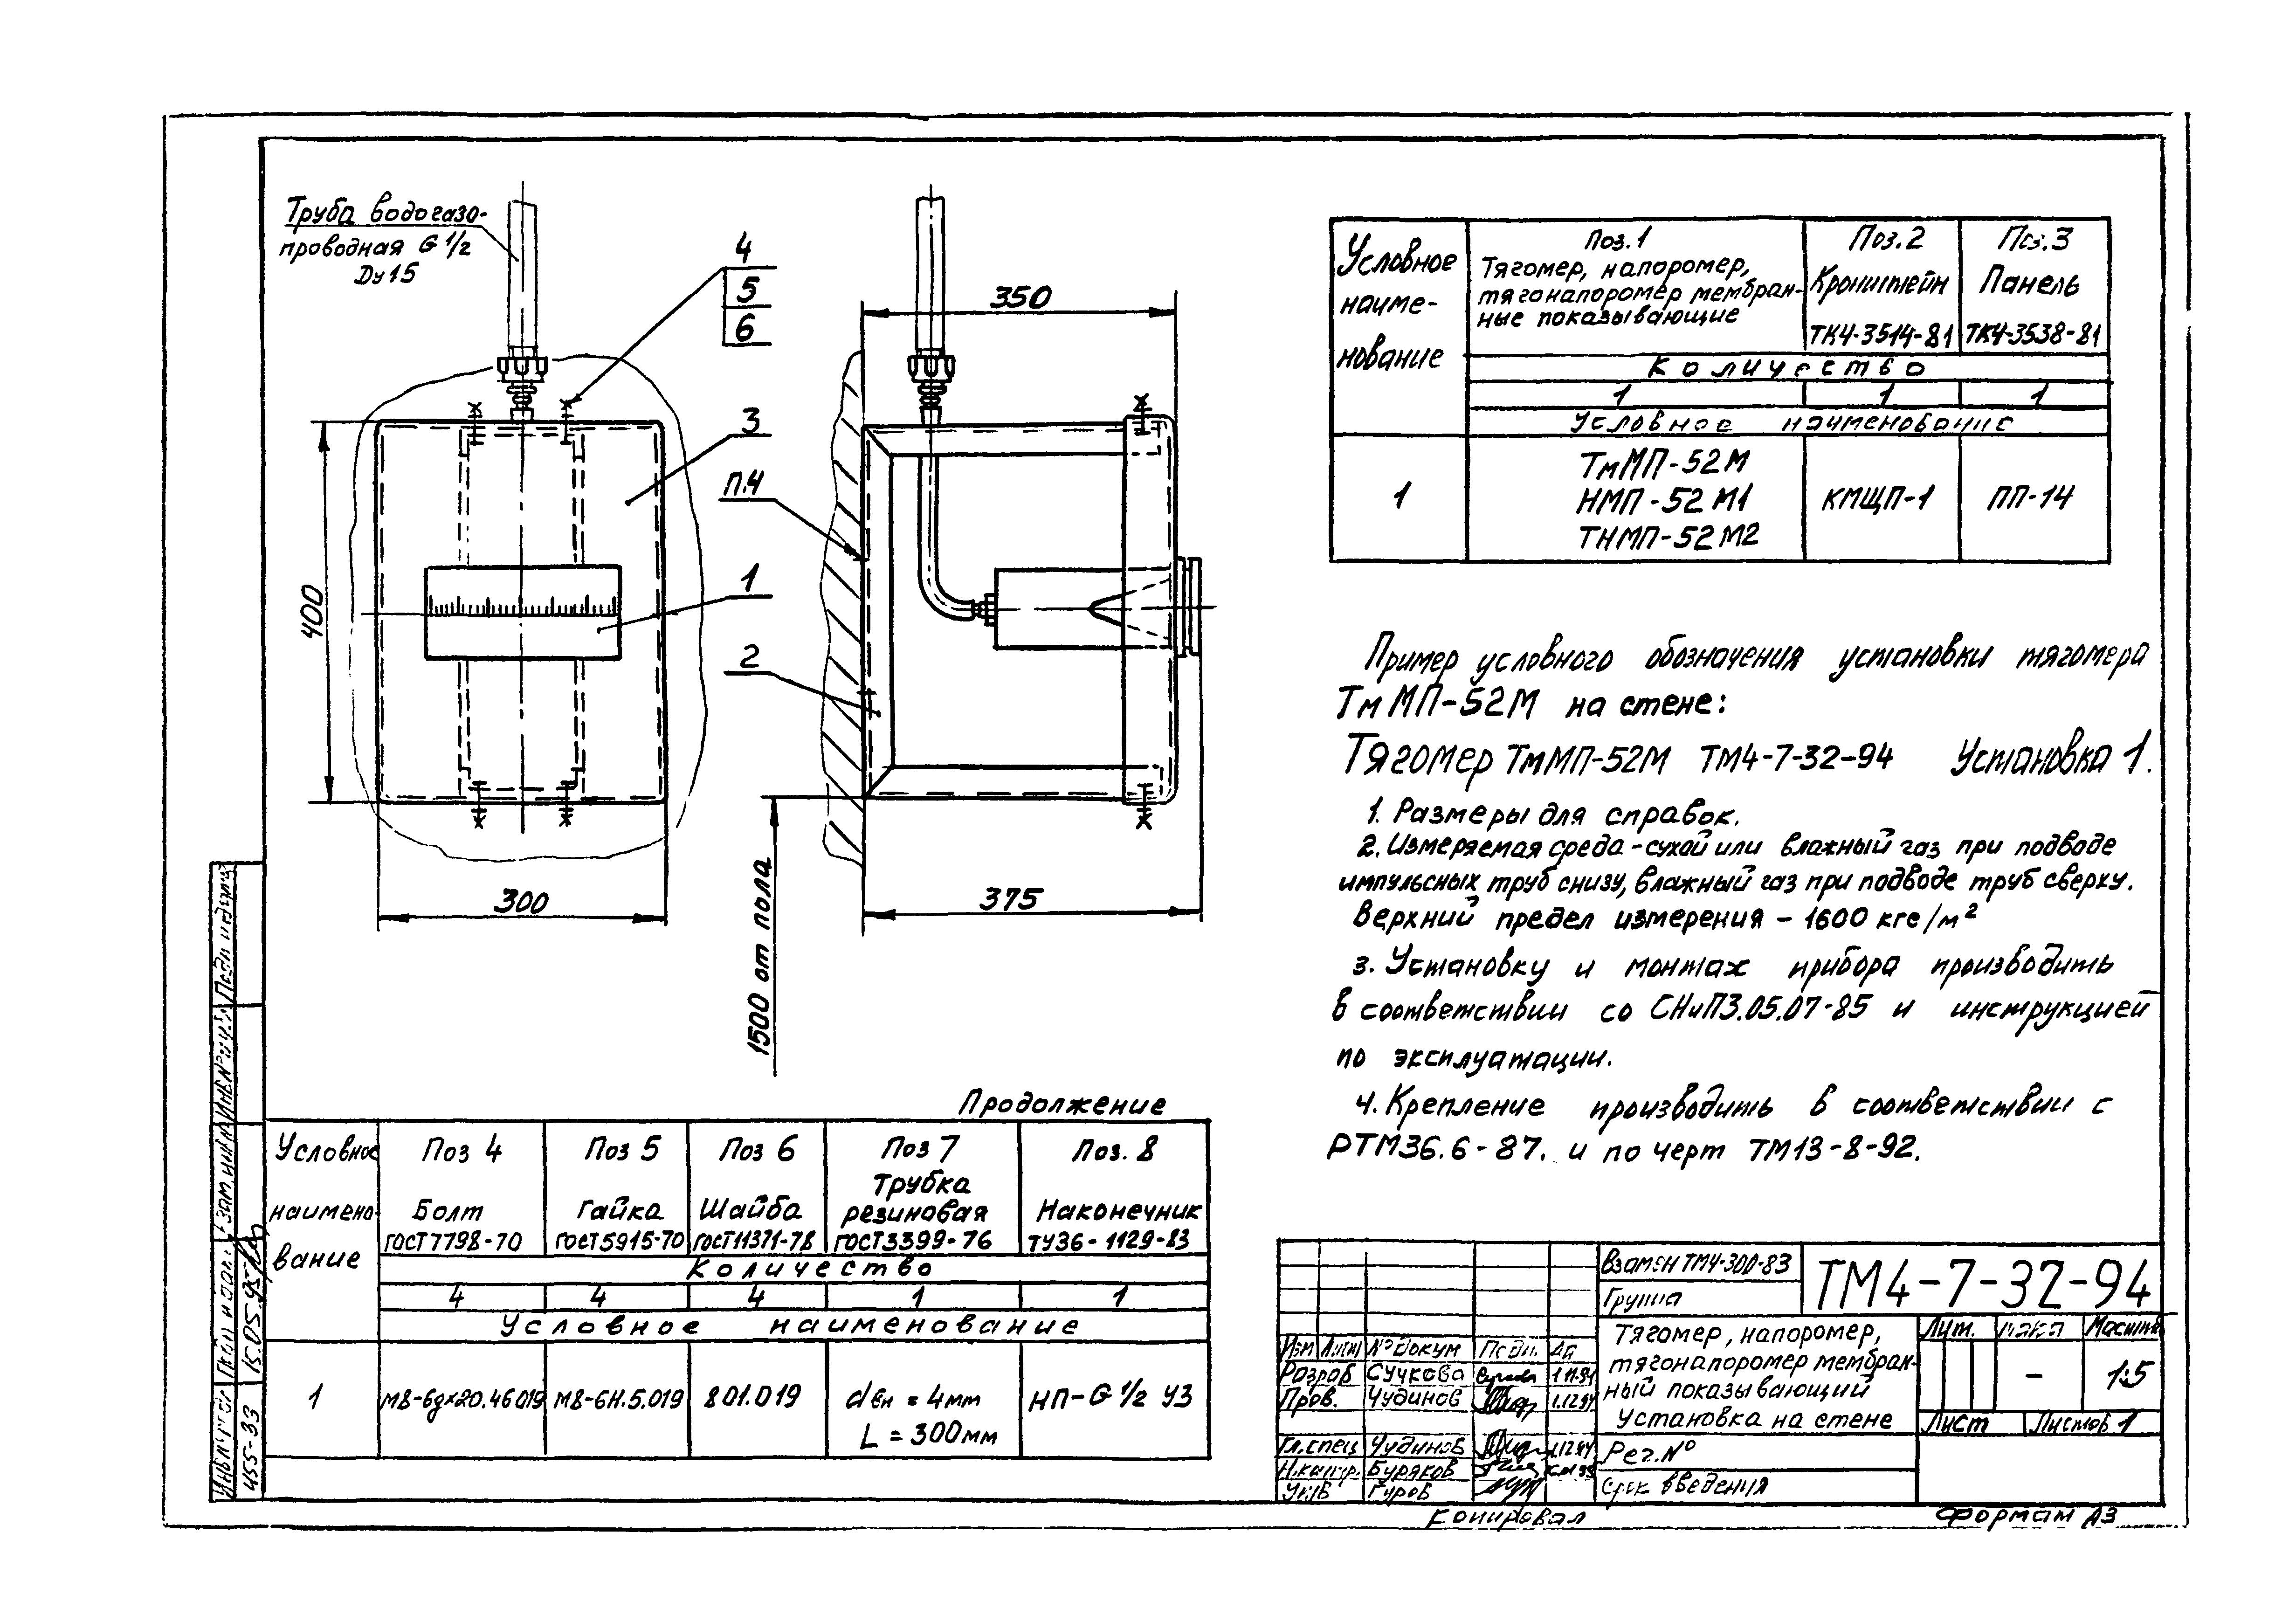 Труба водогазо-
проводная G 1/2
Dу 15
4
5
6
3
П.4
1
2
400
300
350
375
1500 от пола
Условное
наиме-
нование
Поз.1
Тягомер, напоромер,
тягонапоромер мембран-
ные показывающие
Поз.2
Кронштейн
ТК4-3514-81
Поз.3
Панель
ТК4-3538-81
Количество
1 1 1
Условное наименование
1
ТмМП-52М
НМП-52 М1
ТНМП-52 М2
КМЩП-1
ПП-14
Пример условного обозначения установки тягомера
ТмМП-52М на стене:
Тягомер ТмМП-52М ТМ4-7-32-94 Установка 1.
1. Размеры для справок.
2. Измеряемая среда - сухой или влажный газ при подводе
импульсных труб снизу, влажный газ при подводе труб сверху.
Верхний предел измерения - 1600 кгс/м²
3. Установку и монтаж прибора производить
в соответствии со СНиП3.05.07-85 и инструкцией
по эксплуатации.
4. Крепление производить в соответствии с
РТМ36.6-87. и по черт ТМ13-8-92.
Продолжение
Условное
наимено-
вание
Поз 4
Болт
ГОСТ7798-70
Поз 5
Гайка
ГОСТ5915-70
Поз 6
Шайба
ГОСТ11371-78
Поз 7
Трубка
резиновая
ГОСТ3399-76
Поз. 8
Наконечник
ТУ36-1129-83
Количество
4 4 4 1 1
Условное наименование
1
М8-6gх20.46.019
М8-6Н.5.019
8 01.019
dвн = 4мм
L = 300мм
НП-G 1/2 У3
Взамен ТМ4-300-83
Группа
ТМ4-7-32-94
Изм Лист № докум Подп. Да
Разраб Сучкова 1.11.94
Пров. Чудинов 1.12.94
Гл.спец Чудинов 1.12.94
Н.контр. Буряков
Утв Гуров
Тягомер, напоромер,
тягонапоромер мембран-
ный показывающий
Установка на стене
Лит. Масса Масштаб
- 1:5
Лист Листов 1
Рег.№
срок введения
Копировал
Формат А3
455-33
15.05.95